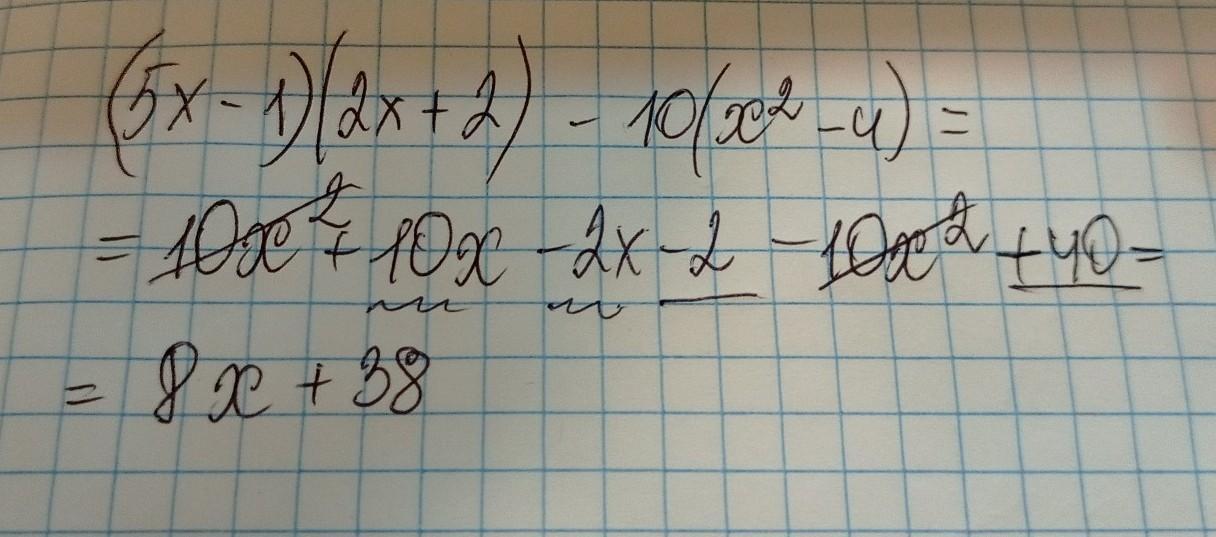 (5x - 1)(2x + 2) - 10(x² - 4) =
= 10x² + 10x - 2x - 2 - 10x² + 40 =
= 8x + 38